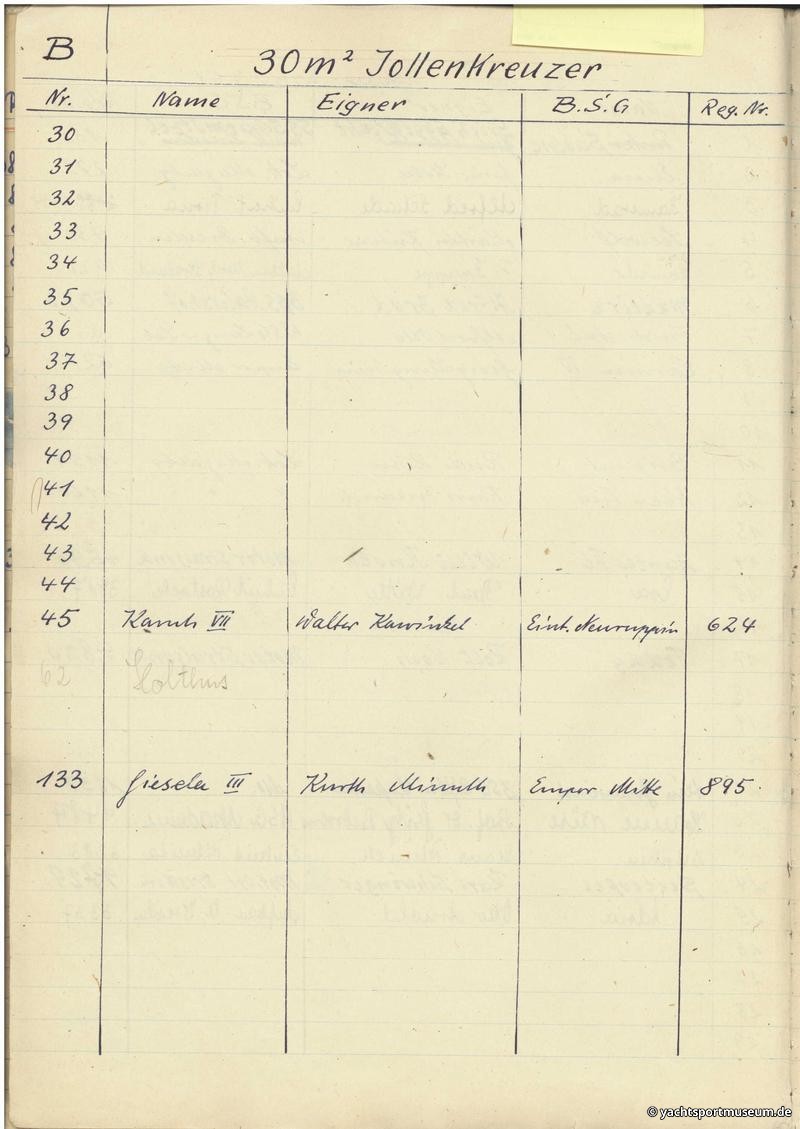 B
30m² Jollenkreuzer
Nr. Name Eigner B.S.G Reg. Nr.
30
31
32
33
34
35
36
37
38
39
40
41
42
43
44
45 VII Walter Kawinkel Eint. Neuruppin 624
62 Holthus
133 Giesela III Kurth Minuth Empor Mitte 895
© yachtsportmuseum.de